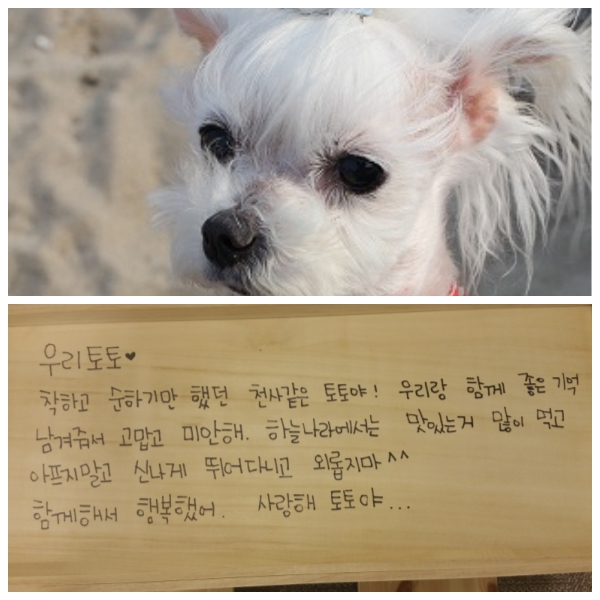 우리토토♥
착하고 순하기만 했던 천사같은 토토야! 우리랑 함께 좋은 기억
남겨줘서 고맙고 미안해. 하늘나라에서는 맛있는거 많이 먹고
아프지말고 신나게 뛰어다니고 외롭지마^^
함께해서 행복했어. 사랑해 토토야...